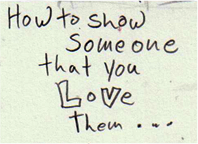 How to show
Someone
that you
LoVe
them...